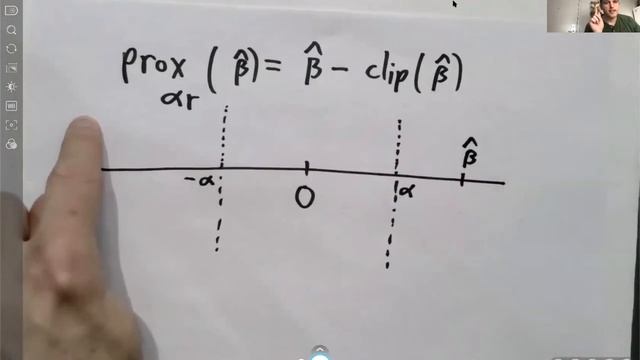 prox_αr (β̂) = β̂ - clip(β̂)
β̂
-α
0
α